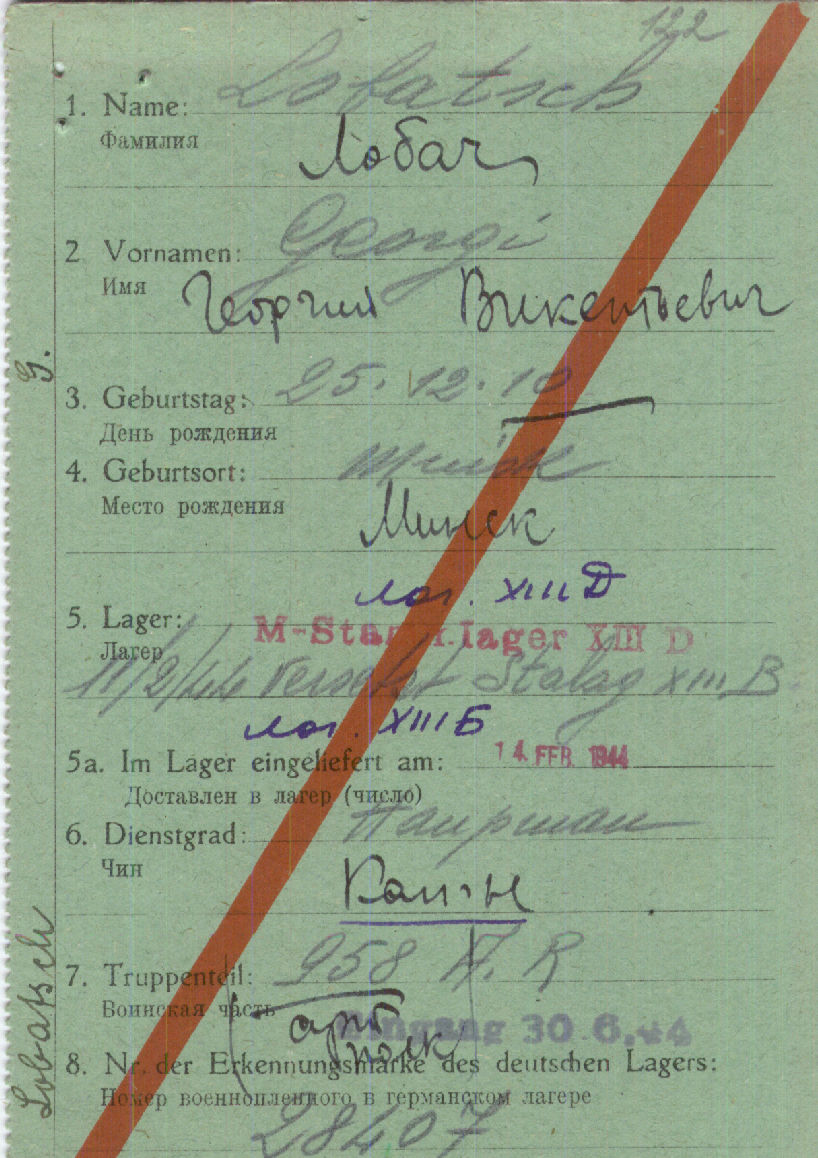 122
1. Name: Lobatsch
Фамилия
Лобач
2 Vornamen: Georgi
Имя
Георгий Викентьевич
3. Geburtstag: 25.12.10
День рождения
4. Geburtsort: Minsk
Место рождения
Минск
лаг. XIII Д
5. Lager: M-Stamm lager XIII D
Лагер
11/2/44 versetzt Stalag XIII B
лаг. XIII Б
5a. Im Lager eingeliefert am: 14. FEB. 1944
Доставлен в лагер (число)
6. Dienstgrad: Haupman
Чин
Кап-н
7. Truppenteil: 958 A. R
Воинская часть
арт полк
Eingang 30.6.44
8. Nr. der Erkennungsmarke des deutschen Lagers:
Номер военнопленного в германском лагере
28407
Lobatsch G.